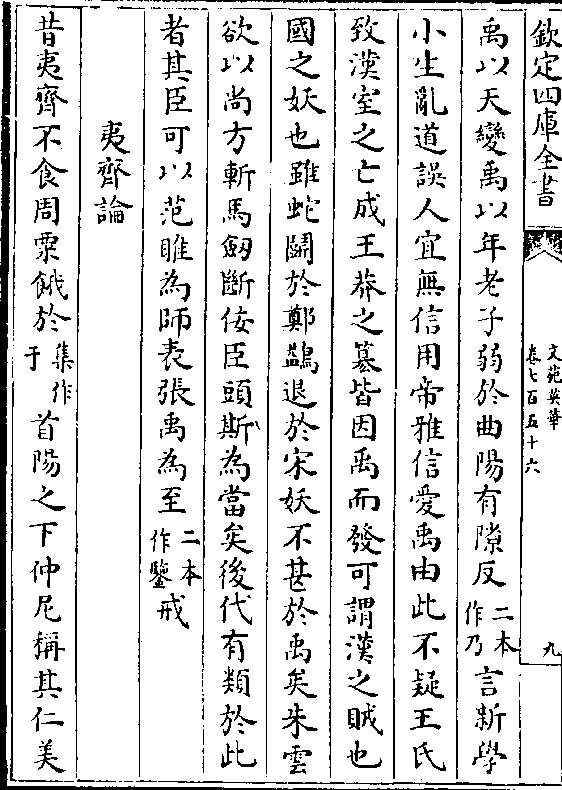 欽定四庫全書
文苑英華
卷七百五十六
九
禹以天變禹以年老子弱於曲陽有隙反二本作乃言新學
小生亂道誤人宜無信用帝雅信愛禹由此不疑王氏
致漢室之亡成王莽之簒皆因禹而發可謂漢之賊也
國之妖也雖蛇鬬於鄭鷁退於宋妖不甚於禹矣朱雲
欲以尚方斬馬劔斷佞臣頭斯為當矣後代有類於此
者其臣可以范睢為師表張禹為至二本作鑒戒
夷齊論
昔夷齊不食周粟餓於集作于首陽之下仲尼稱其仁美